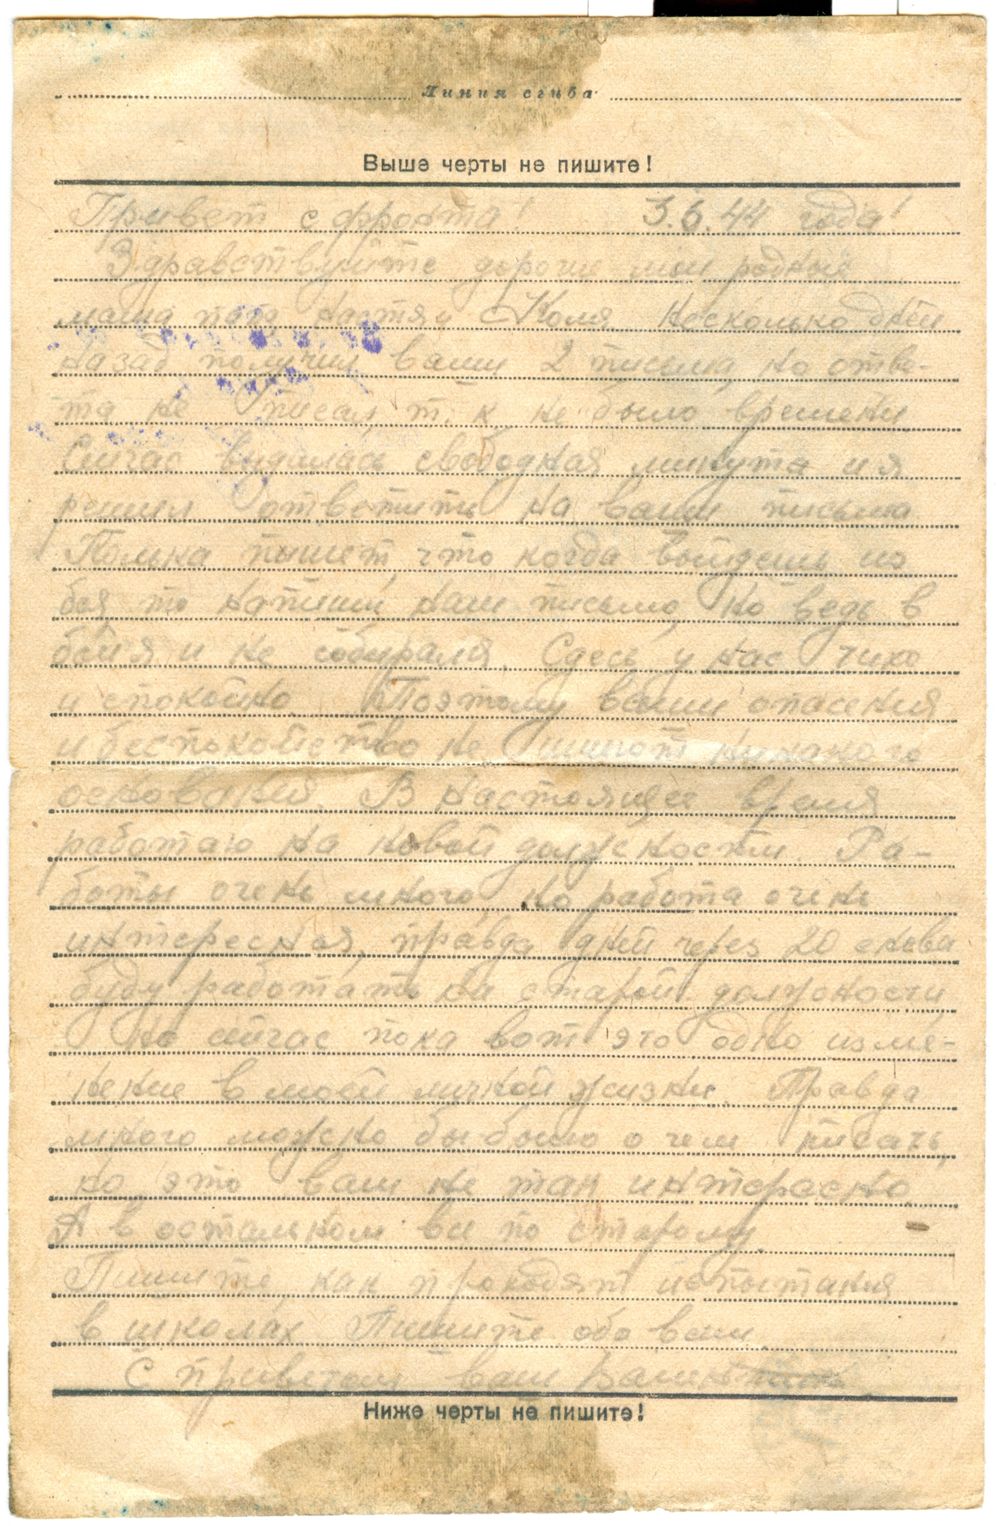 Линия сгиба
Выше черты не пишите!
Привет с фронта! 3.6.44 года!
Здравствуйте дорогие мои родные
мама папа и Коля Несколько дней
назад получил ваши 2 письма, но отве-
та не писал, т. к не было времени
Сейчас выдалась свободная минута и я
решил ответить на ваши письма
Полька пишет, что когда выйдешь из
боя то напиши нам письмо, но ведь в
бой я и не собирался. Сдесь у нас тихо
и спокойно. Поэтому ваши опасения
и беспокойство не имеют никакого
основания. В настоящее время
работаю на новой должности. Ра-
боты очень много, но работа очень
интересная, правда дней через 20 снова
буду работать на старой должности,
но сейчас пока вот это одно изме-
нение в моей личной жизни. Правда
много можно бы было о чем писать,
но это вам не так интересно.
А в остальном все по старому.
Пишите, как проходят испытания
в школах. Пишите обо всем.
С приветом ваш
Ниже черты не пишите!